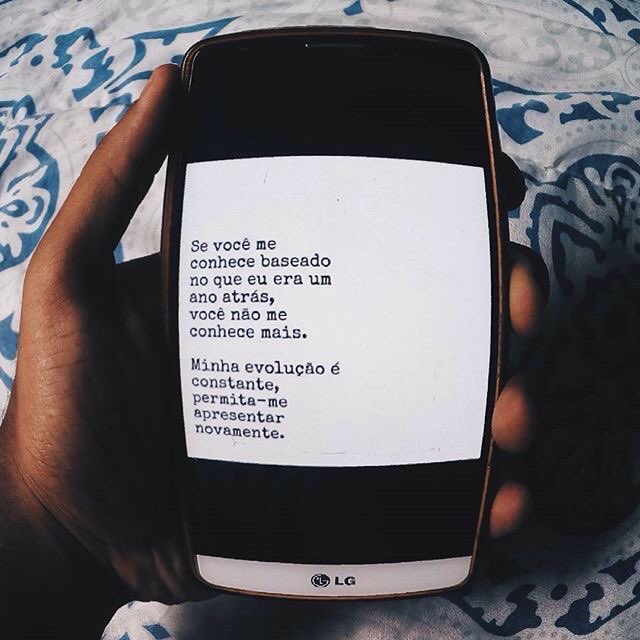 Se você me
conhece baseado
no que eu era um
ano atrás,
você não me
conhece mais.
Minha evolução é
constante,
permita-me
apresentar
novamente.
LG